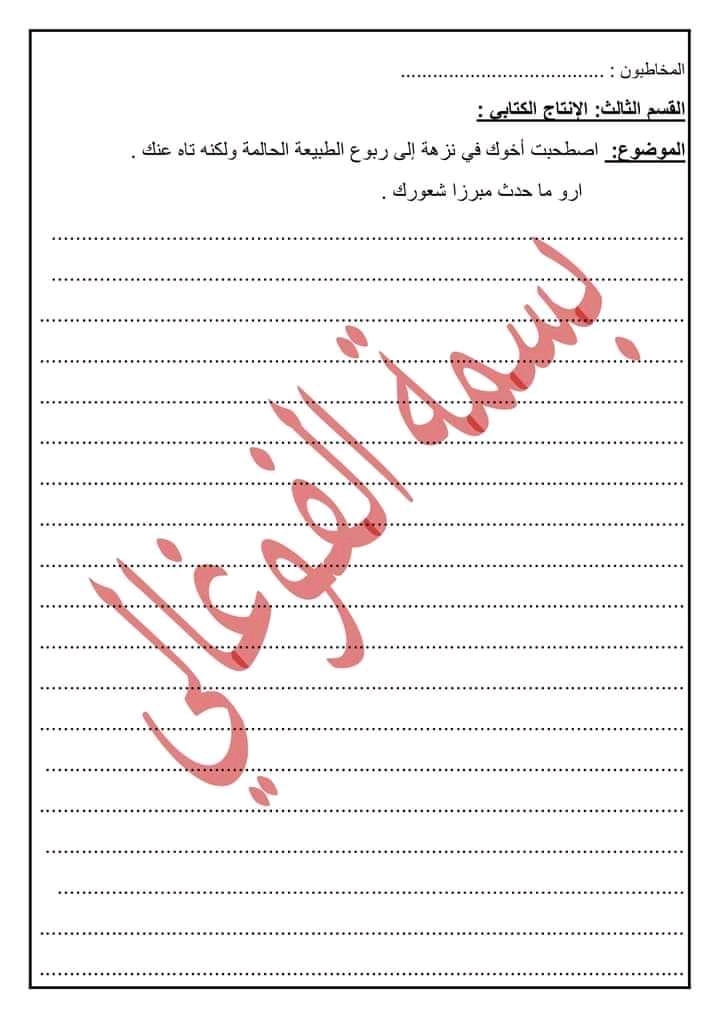 المخاطبون : ......................................
القسم الثالث: الإنتاج الكتابي :
الموضوع: اصطحبت أخوك في نزهة إلى ربوع الطبيعة الحالمة ولكنه تاه عنك .
ارو ما حدث مبرزا شعورك .
بسمة الفوغالي